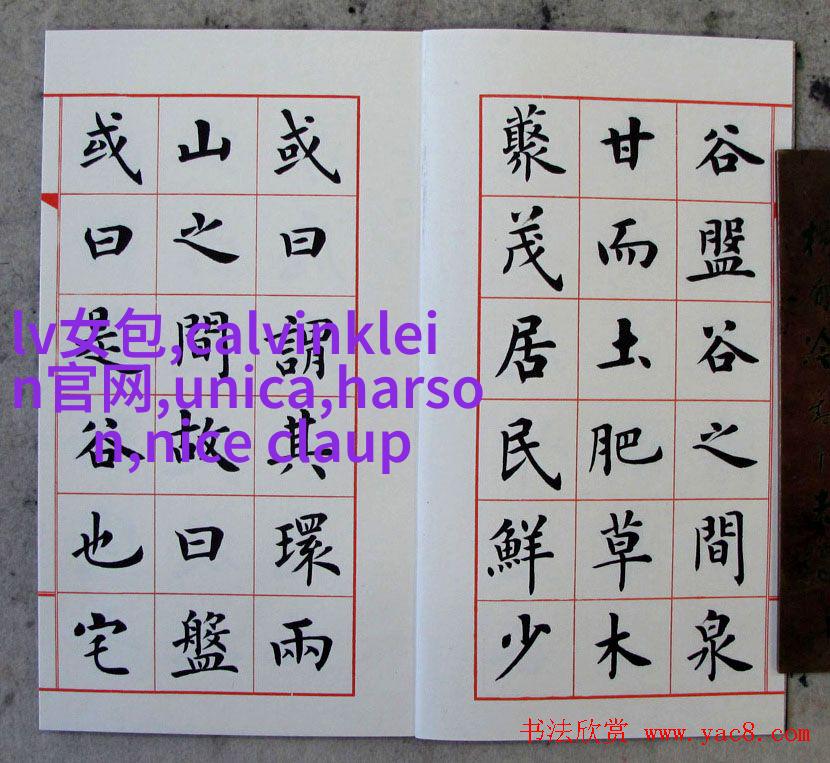 谷盤谷之間泉
甘而土肥草木
藂茂居民鮮少
或曰謂其環兩
山之間故曰盤
或曰是谷也宅
lv女包,calvinklei
n官网,unica,harso
n,nice claup
书法欣赏 www.yac8.com